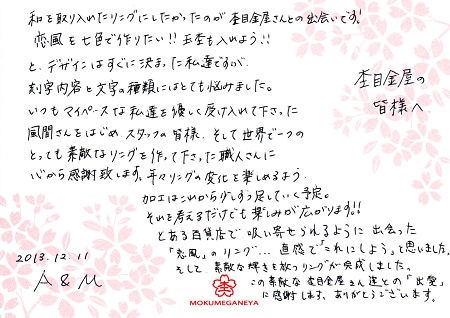 和を取り入れたリングにしたかったのが杢目金屋さんとの出会いです!
恋風を七色で作りたい!!五杢も入れよう!!
と、デザインはすぐに決まった私達ですが、
刻字内容と文字の種類にはとても悩みました。
いつもマイペースな私達を優しく受け入れて下さった
風間さんをはじめ、スタッフの皆様、そして世界で一つの
とっても素敵なリングを作って下さった職人さんに
心から感謝致します。年々リングの変化を楽しめるよう
加工はこれから少しずつ足していく予定。
それを考えるだけでも楽しみが広がります!!
とある百貨店で吸い寄せられるように出会った
「恋風」のリング…直感で「これにしよう」と思いました。
そして、素敵な輝きを放つリングが完成しました。
この素敵な杢目金屋さん達との「出愛」
に感謝します。ありがとうございます。
杢目金屋の
皆様へ
2013.12.11
A & M
MOKUMEGANEYA